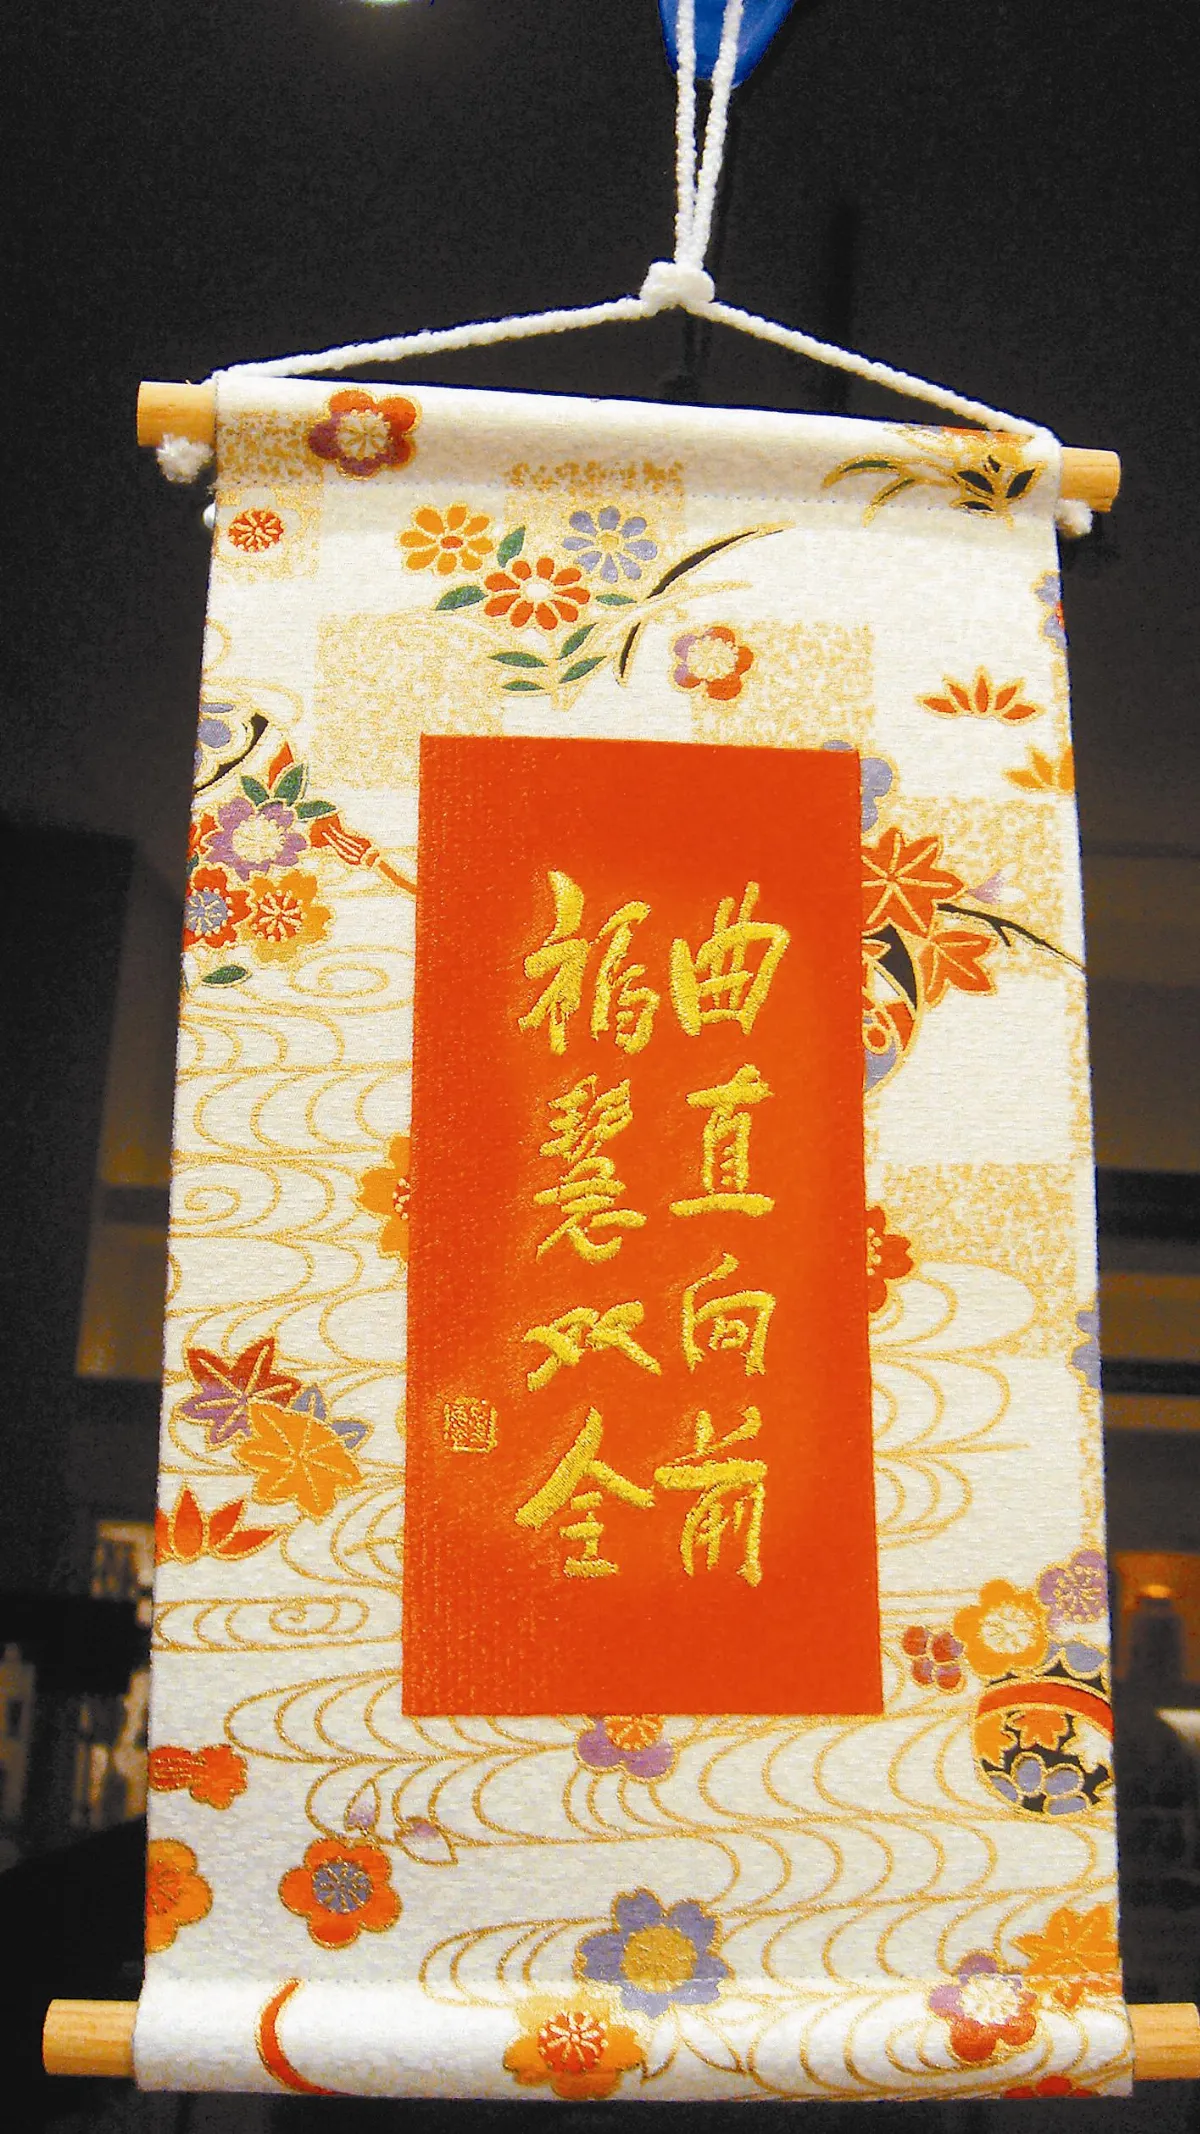 曲直向前
福慧双全